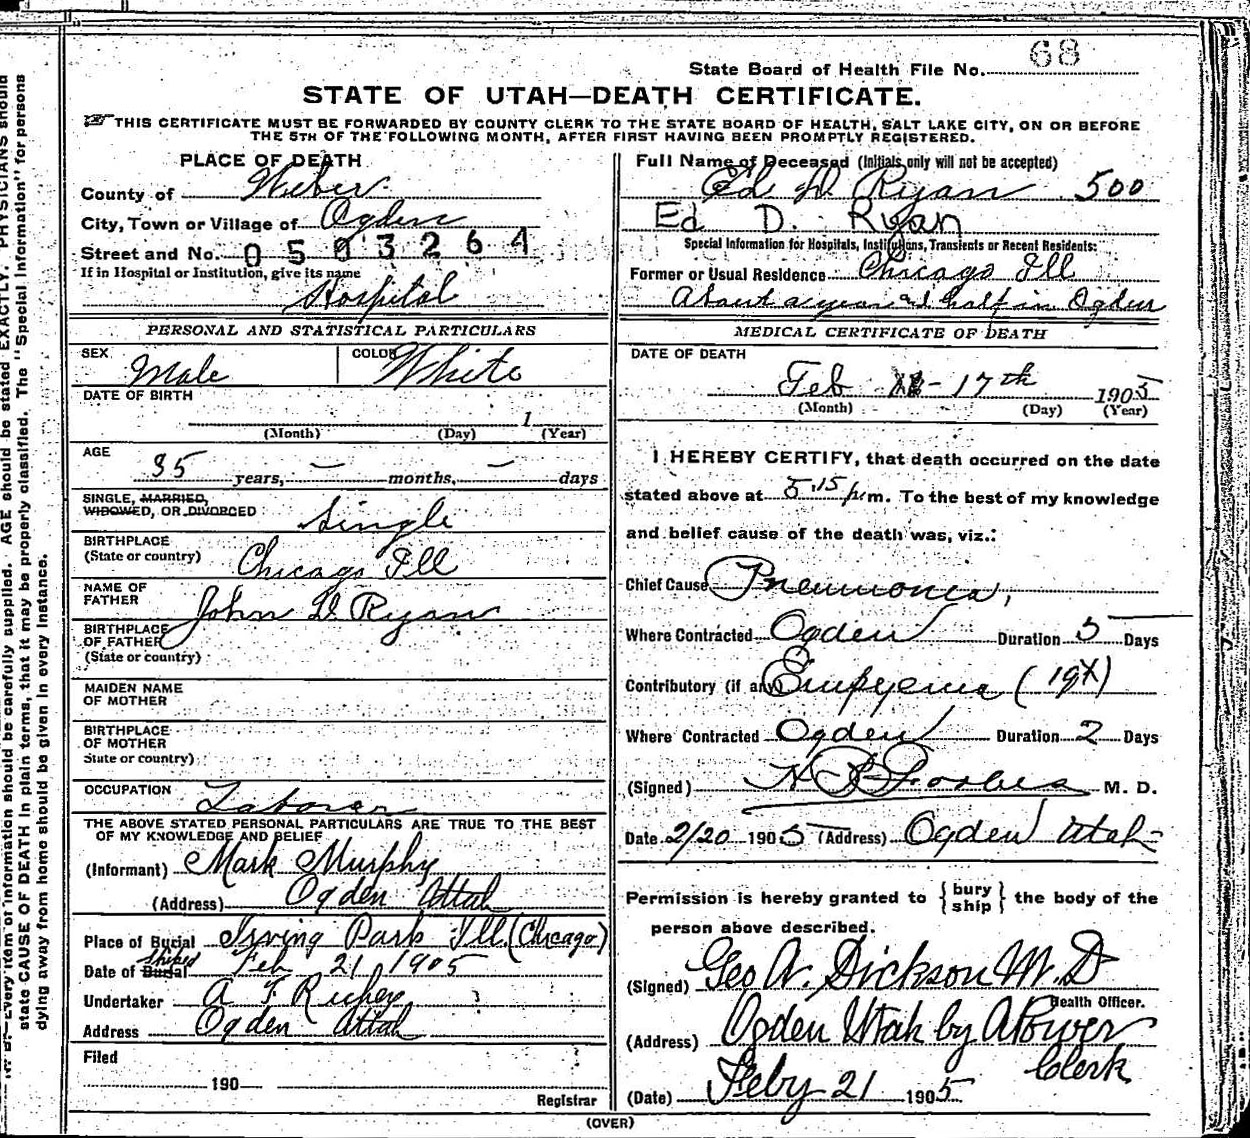 68
State Board of Health File No.
STATE OF UTAH—DEATH CERTIFICATE.
THIS CERTIFICATE MUST BE FORWARDED BY COUNTY CLERK TO THE STATE BOARD OF HEALTH, SALT LAKE CITY, ON OR BEFORE
THE 5TH OF THE FOLLOWING MONTH, AFTER FIRST HAVING BEEN PROMPTLY REGISTERED.
PLACE OF DEATH
County of Weber
City, Town or Village of Ogden
Street and No. 0503264
If in Hospital or Institution, give its name
Hospital
PERSONAL AND STATISTICAL PARTICULARS
SEX Male COLOR White
DATE OF BIRTH
1
(Month) (Day) (Year)
AGE
35 years, — months, — days
SINGLE, MARRIED,
WIDOWED, OR DIVORCED Single
BIRTHPLACE
(State or country) Chicago Ill
NAME OF
FATHER John D Ryan
BIRTHPLACE
OF FATHER
(State or country)
MAIDEN NAME
OF MOTHER
BIRTHPLACE
OF MOTHER
State or country)
OCCUPATION Laborer
THE ABOVE STATED PERSONAL PARTICULARS ARE TRUE TO THE BEST
OF MY KNOWLEDGE AND BELIEF
(Informant) Mark Murphy
(Address) Ogden Uttah
Place of Burial Irving Park Ill (Chicago)
Shiped
Date of Burial Feb 21 1905
Undertaker A
Address Ogden Uttah
Filed
190
Registrar
Full Name of Deceased (Initials only will not be accepted)
Ed D. Ryan 500
Ed D. Ryan
Special Information for Hospitals, Institutions, Transients or Recent Residents:
Former or Usual Residence Chicago Ill
About a year & half in Ogden
MEDICAL CERTIFICATE OF DEATH
DATE OF DEATH
Feb - 17th 1905
(Month) (Day) (Year)
I HEREBY CERTIFY, that death occurred on the date
stated above at 5.15 p.m. To the best of my knowledge
and belief cause of the death was, viz.:
Chief Cause Pneumonia,
Where Contracted Ogden Duration 5 Days
Contributory (if any) Empyema (19X)
Where Contracted Ogden Duration 2 Days
(Signed) H Forbes M. D.
Date 2/20 1905 (Address) Ogden Utah
Permission is hereby granted to {bury
ship} the body of the
person above described.
(Signed) Geo W. Dickson M.D
Health Officer.
(Address) Ogden Utah by A Power
Clerk
(Date) Feby 21 1905
(OVER)
state CAUSE OF DEATH in plain terms, that it may be properly classified. The "Special Information" for persons
dying away from home should be given in every instance.